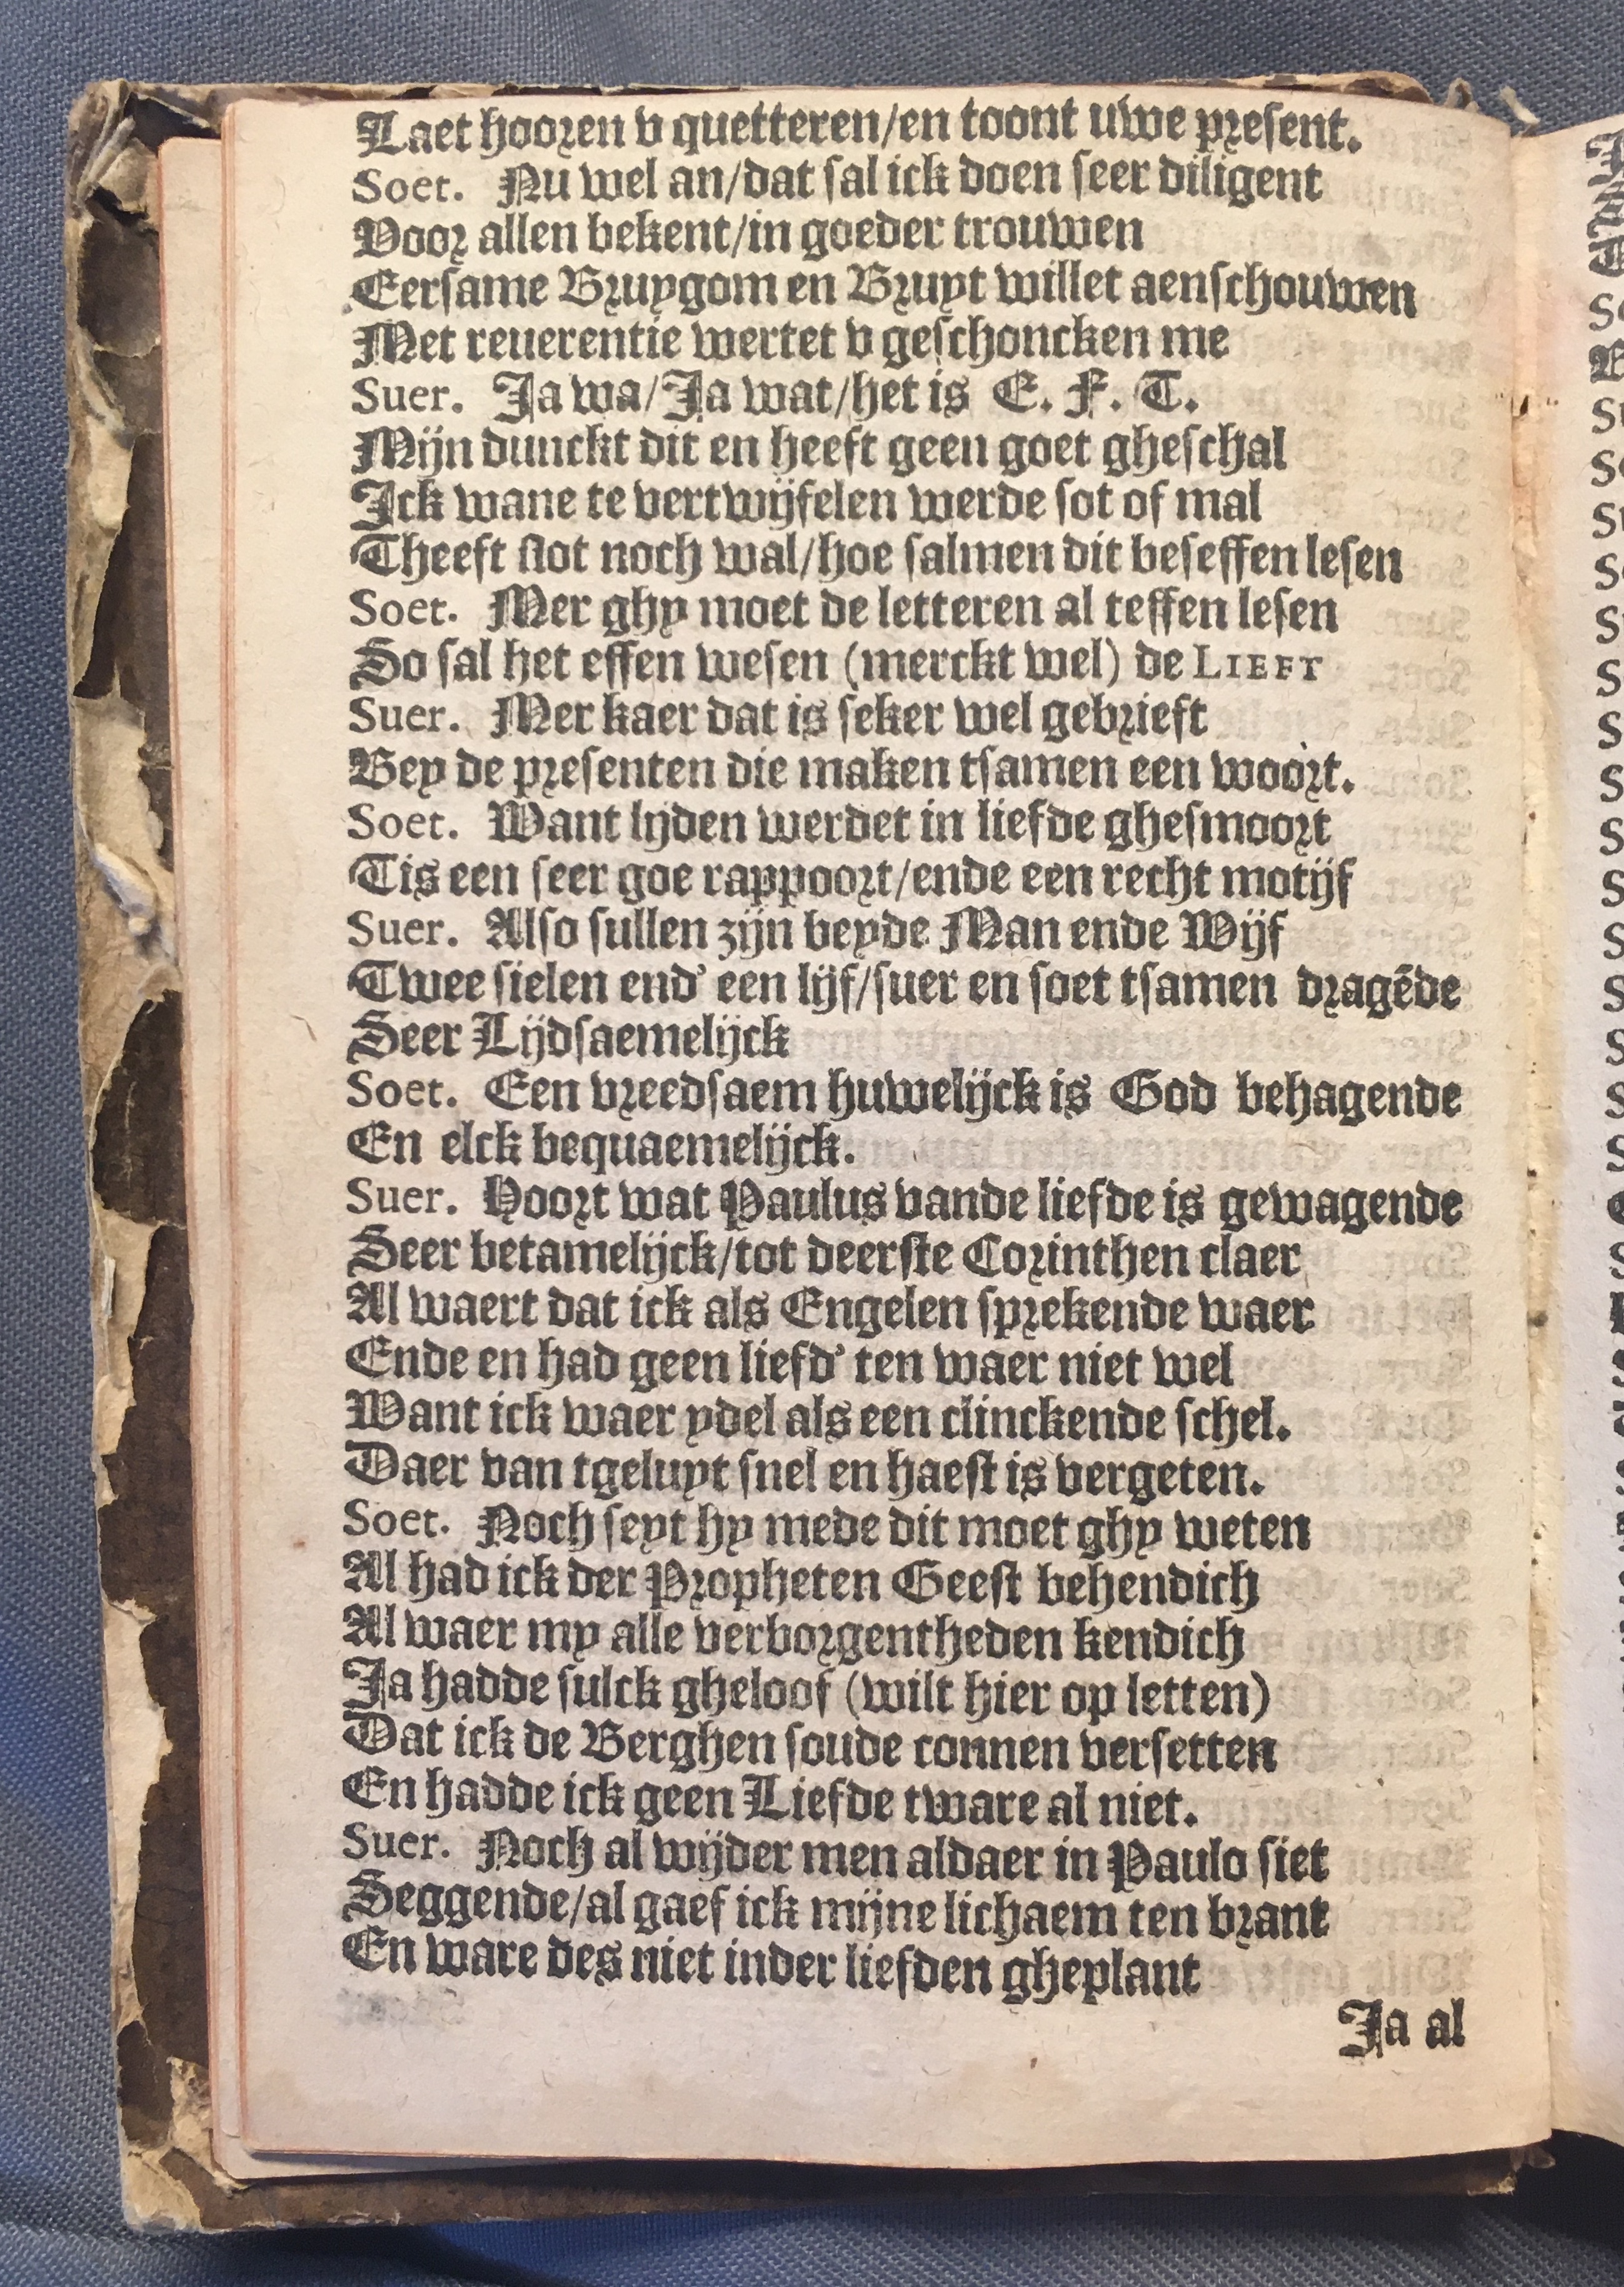 Laet hooren v quetteren/en toont uwe present.
Soet. Nu wel an/dat sal ick doen seer diligent
Voor allen bekent/in goeder trouwen
Eersame Bruygom en Bruyt willet aenschouwen
Met reuerentie wertet v geschoncken me
Suer. Ja wa/Ja wat/het is E. F. T.
Mijn dunckt dit en heeft geen goet gheschal
Ick wane te vertwijfelen werde sot of mal
Theeft slot noch wal/hoe salmen dit beseffen lesen
Soet. Mer ghy moet de letteren al teffen lesen
So sal het effen wesen (merckt wel) de LIEFT
Suer. Mer kaer dat is seker wel gebrieft
Bey de presenten die maken tsamen een woort.
Soet. Want lyden werdet in liefde ghesmoort
Tis een seer goe rappoort/ende een recht motijf
Suer. Also sullen zijn beyde Man ende Wijf
Twee sielen end' een lijf/suer en soet tsamen dragēde
Seer Lijdsaemelijck
Soet. Een vreedsaem huwelijck is God behagende
En elck bequaemelijck.
Suer. Hoort wat Paulus vande liefde is gewagende
Seer betamelijck/tot deerste Corinthen claer
Al waert dat ick als Engelen sprekende waer
Ende en had geen liefd' ten waer niet wel
Want ick waer ydel als een clinckende schel.
Daer van tgeluyt snel en haest is vergeten.
Soet. Noch seyt hy mede dit moet ghy weten
Al had ick der Propheten Geest behendich
Al waer my alle verborgentheden kendich
Ja hadde sulck gheloof (wilt hier op letten)
Dat ick de Berghen soude connen versetten
En hadde ick geen Liefde tware al niet.
Suer. Noch al wijder men aldaer in Paulo siet
Seggende/al gaef ick mijne lichaem ten brant
En ware des niet inder liefden gheplant
Ja al